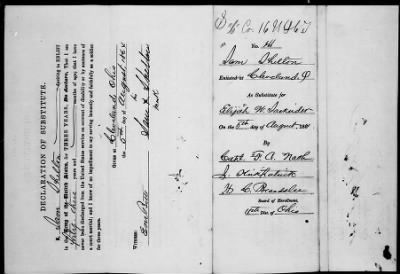 DECLARATION OF SUBSTITUTE.
I, Sam Shelton desiring to ENLIST
in the Army of the United States, for THREE YEARS, Do declare, That I am
years and months of age; that I have
never been discharged from the United States service on account of disability or by sentence of
a court martial; and I know of no impediment to my serving honestly and faithfully as a soldier
for three years.
Given at Cleveland Ohio
the 5th day of August 1864
his
Sam X Shelton
mark
Witness:
No.
Sam Shelton
Enlisted at Cleveland O
As Substitute for
Elijah W.
On the 5th day of August 1864
By
Capt F. A. Nash
H C
Board of Enrollment,
18th Dist. of Ohio